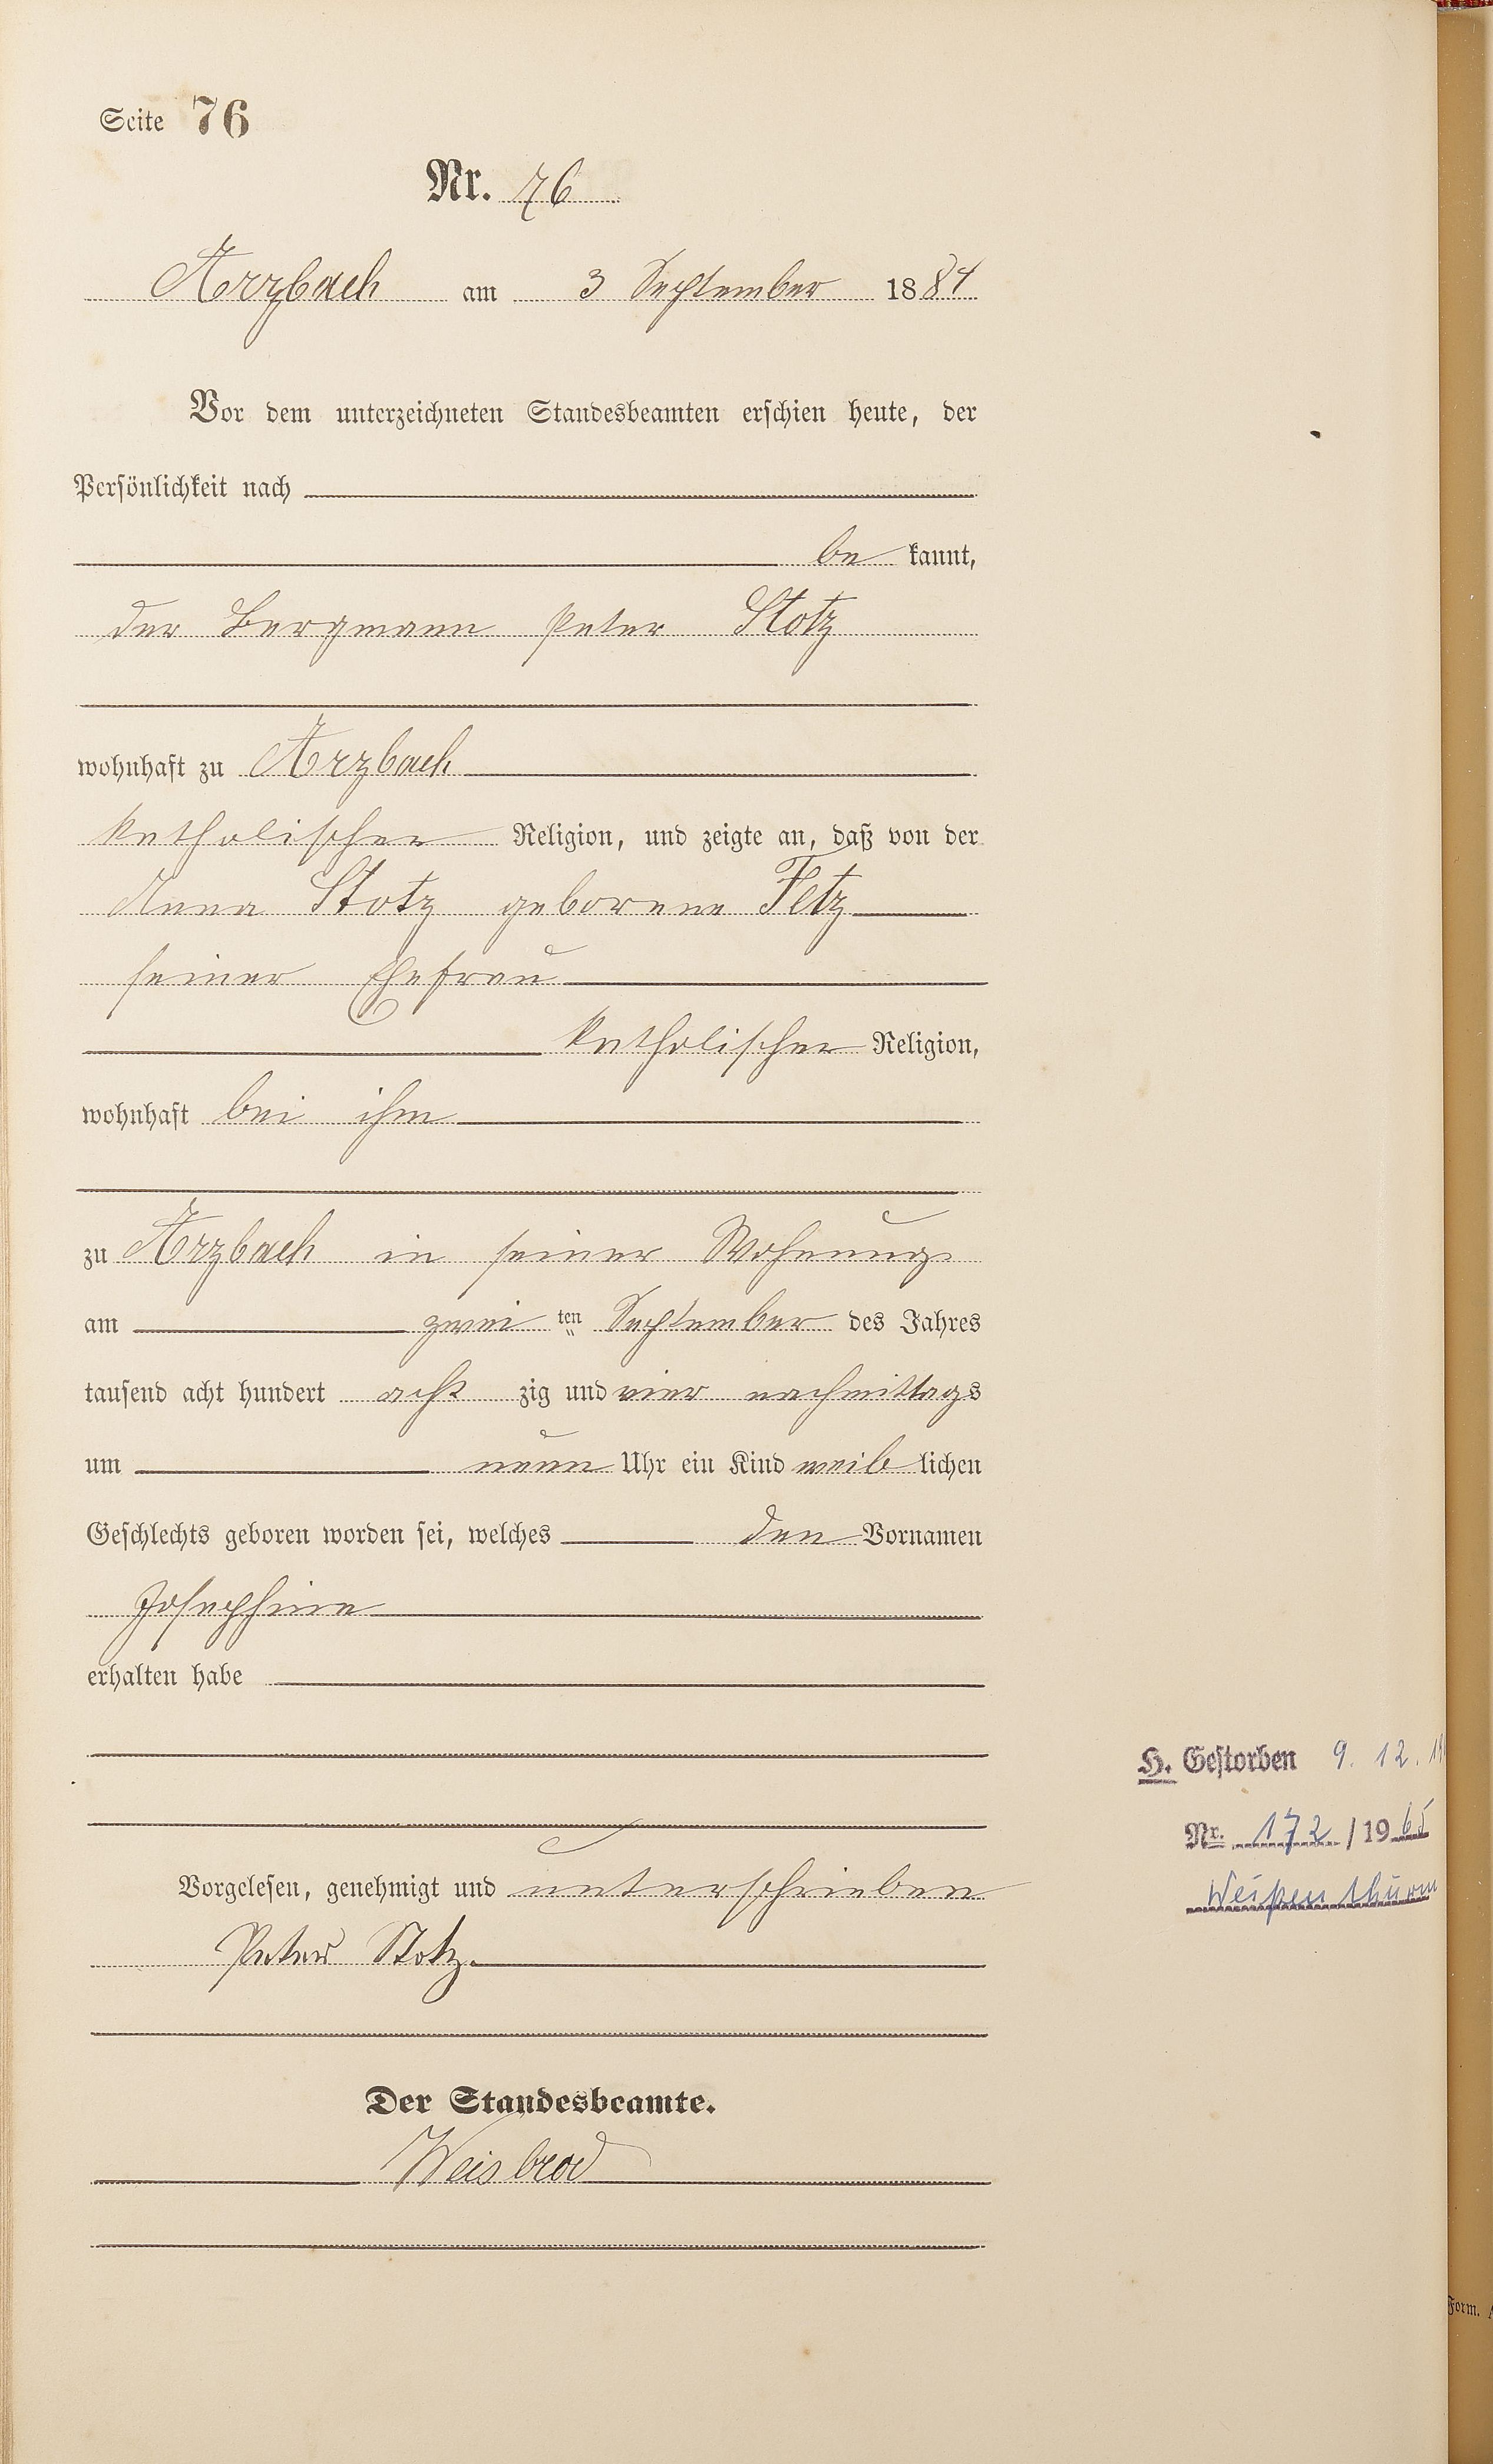 Seite 76
Nr. 76
Arzbach am 3 September 1884
Vor dem unterzeichneten Standesbeamten erschien heute, der
Persönlichkeit nach
be kannt,
der Bergmann Peter Stotz
wohnhaft zu Arzbach
katholischer Religion, und zeigte an, daß von der
Anna Stotz geborene Fetz
seiner Ehefrau
katholischer Religion,
wohnhaft bei ihm
zu Arzbach in seiner Wohnung
am zwei ten September des Jahres
tausend acht hundert acht zig und vier nachmittags
um neun Uhr ein Kind weib lichen
Geschlechts geboren worden sei, welches den Vornamen
Josephine
erhalten habe
H. Gestorben 9. 12.
Nr. 172 / 1965
Weißenthurm
Vorgelesen, genehmigt und unterschrieben
Peter Stotz.
Der Standesbeamte.
Weisbrod
Form.